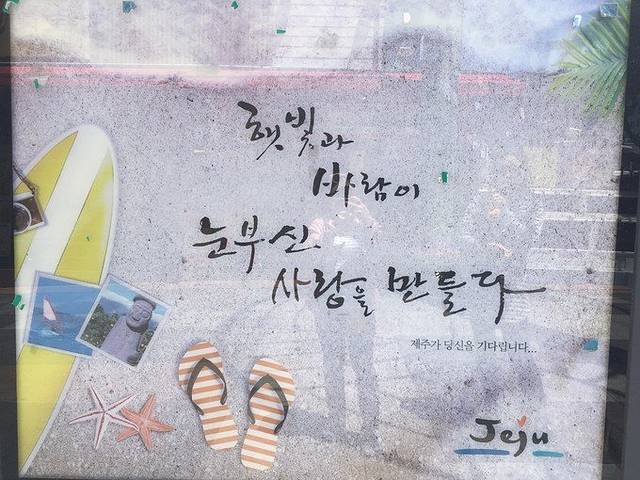 햇빛과
바람이
눈부신
사랑을 만들다
제주가 당신을 기다립니다...
Jeju